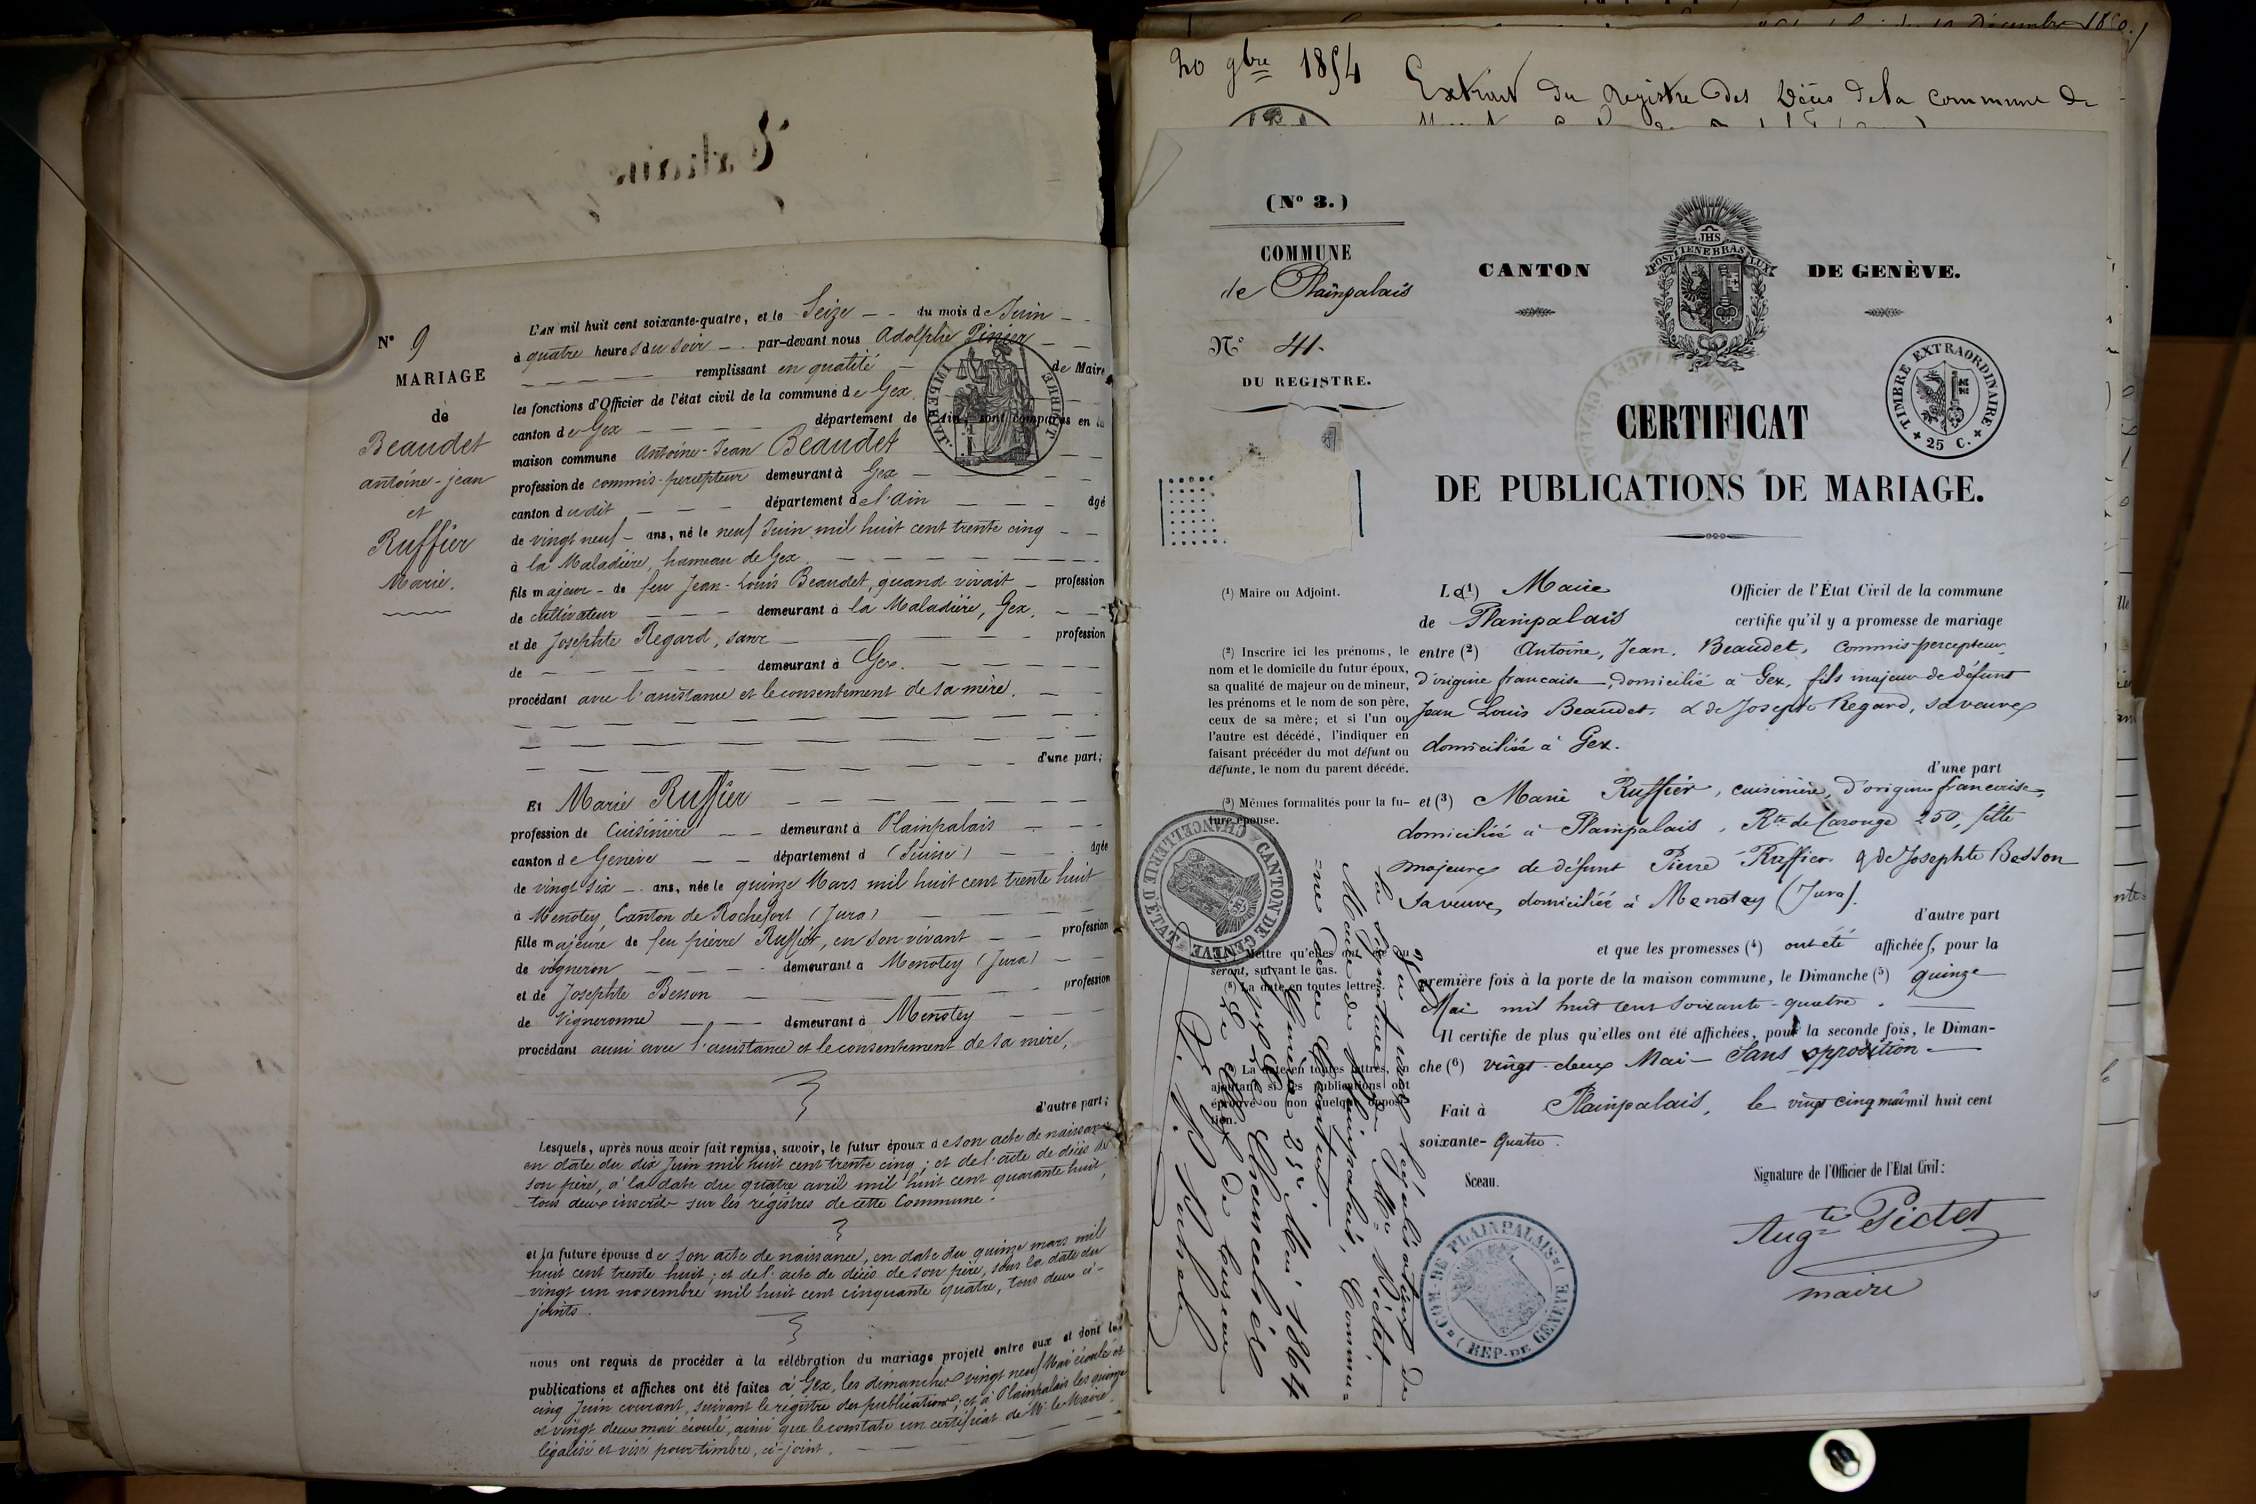 N° 9
MARIAGE
de
Beaudet
antoine-jean
et
Ruffier
Marie.
L'AN mil huit cent soixante-quatre, et le Seize du mois de Juin
à quatre heures du soir par-devant nous Adolphe
remplissant en qualité de Maire
les fonctions d'Officier de l'état civil de la commune de Gex
canton de Gex département de Ain sont comparus en la
maison commune Antoine-Jean Beaudet
profession de commis-percepteur demeurant à Gex
canton dudit département de l'Ain âgé
de vingt neuf ans, né le neuf Juin mil huit cent trente cinq
à la Maladière, hameau de Gex
fils majeur de feu Jean-Louis Beaudet, quand vivait profession
de cultivateur demeurant à la Maladière, Gex,
et de Josephte Regard, sa profession
de demeurant à Gex.
procédant avec l'assistance et le consentement de sa mère.
d'une part;
Et Marie Ruffier
profession de Cuisinière demeurant à Plainpalais
canton de Genève département d (Suisse) âgée
de vingt six ans, née le quinze Mars mil huit cent trente huit
à Menotey, Canton de Rochefort (Jura)
fille majeure de feu pierre Ruffier, en son vivant profession
de vigneron demeurant à Menotey (Jura)
et de Josephte Besson profession
de Vigneronne demeurant à Menotey
procédant aussi avec l'assistance et le consentement de sa mère,
d'autre part;
Lesquels, après nous avoir fait remise, savoir, le futur époux de son acte de naissance
en date du dix Juin mil huit cent trente cinq; et de l'acte de décès de
son père, à la date du quatre avril mil huit cent quarante huit,
tous deux inscrits sur les régistres de cette Commune.
et la future épouse de son acte de naissance, en date du quinze mars mil
huit cent trente huit; et de l'acte de décès de son père, sous la date du
vingt un novembre mil huit cent cinquante quatre, tous deux ci-
joints.
nous ont requis de procéder à la célébration du mariage projeté entre eux et dont les
publications et affiches ont été faites à Gex, les dimanches vingt neuf Mai écoulé et
cinq Juin courant, suivant le régistre des publications; et à Plainpalais les quinze
et vingt deux mai écoulé, ainsi que le constate un certificat de Mr le Maire
légalisé et visé pour timbre, ci-joint.
TIMBRE IMPERIAL
Décembre 18
20 9bre 1854
Extrait du Registre des Décès de la commune de
(N° 3.)
COMMUNE
de Plainpalais
N° 41.
DU REGISTRE.
CANTON DE GENÈVE.
JHS
POST TENEBRAS LUX
TIMBRE EXTRAORDINAIRE
25 C.
CERTIFICAT
DE PUBLICATIONS DE MARIAGE.
(1) Maire ou Adjoint.
Le (1) Maire Officier de l'État Civil de la commune
de Plainpalais certifie qu'il y a promesse de mariage
(2) Inscrire ici les prénoms, le
nom et le domicile du futur époux,
sa qualité de majeur ou de mineur,
les prénoms et le nom de son père,
ceux de sa mère; et si l'un ou
l'autre est décédé, l'indiquer en
faisant précéder du mot défunt ou
défunte, le nom du parent décédé.
entre (2) Antoine, Jean, Beaudet, Commis-percepteur,
d'origine francaise, domicilié à Gex, fils majeur de défunt
Jean Louis Beaudet, & de Josephte Regard, sa veuve,
domiciliée à Gex.
d'une part
(3) Mêmes formalités pour la fu-
ture épouse.
et (3) Marie Ruffier, cuisinière, d'origine francaise,
domiciliée à Plainpalais, Rte de Carouge 250, fille
majeure de défunt Pierre Ruffier & de Josephte Besson
sa veuve, domiciliée à Menotey (Jura).
d'autre part
et que les promesses (4) ont été affichées, pour la
première fois à la porte de la maison commune, le Dimanche (5) quinze
Mai mil huit cent soixante-quatre.
Il certifie de plus qu'elles ont été affichées, pour la seconde fois, le Diman-
che (6) vingt-deux Mai - Sans opposition
Fait à Plainpalais, le vingt cinq mai mil huit cent
soixante-quatre.
Mettre qu'elles ont été ou
seront, suivant le cas.
(5) La date en toutes lettres.
La date en toutes lettres, en
ajoutant si les publications ont
éprouvé ou non quelque opposi-
tion.
Sceau.
Signature de l'Officier de l'Etat Civil:
Augte Pictet
maire
CANTON DE GENÈVE
CHANCELLERIE D'ÉTAT
COM. DE PLAINPALAIS
REP. DE GENÈVE
Vu pour légalisation de
la signature de Mr Pictet
Maire de Plainpalais, Commu-
ne de ce Canton.
Genève 25 Mai 1864
Pr Le Chancelier
Le chef de bureau